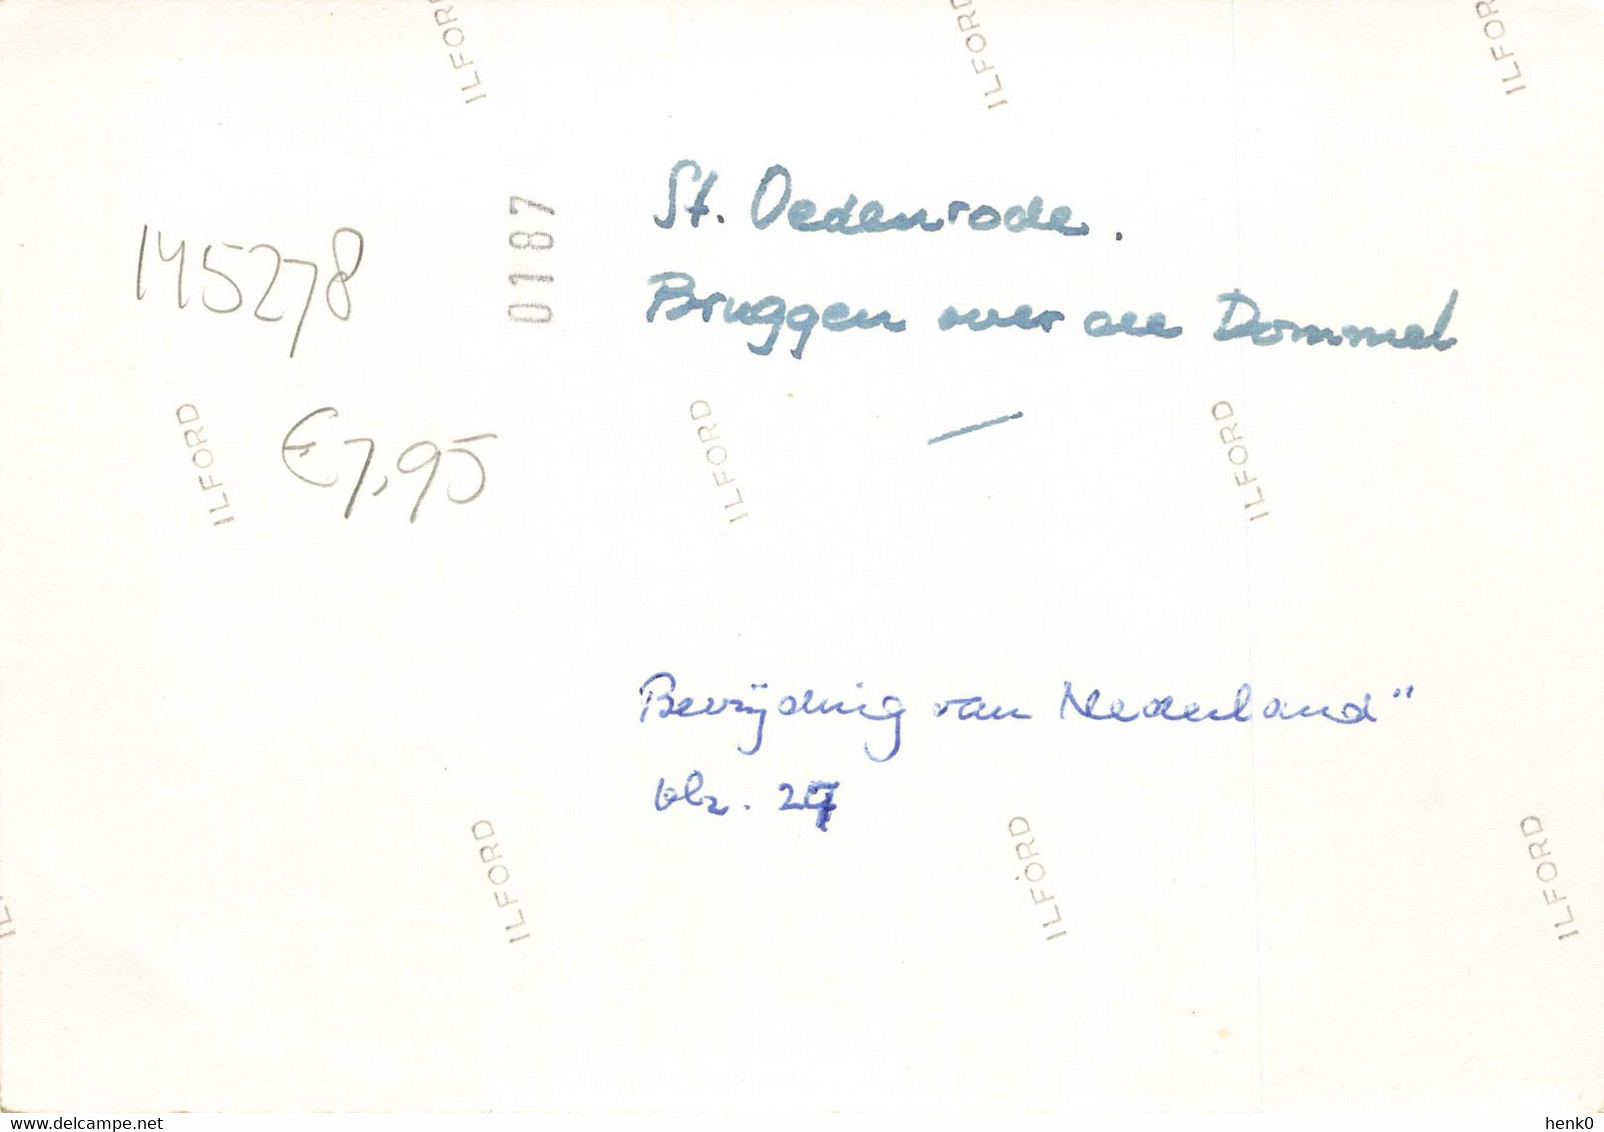 ILFORD ILFORD ILFORD
St. Oedenrode.
145278
0187
Bruggen over de Dommel
—
ILFORD ILFORD ILFORD
€7,95
Bevrijding van Nederland"
blz. 27
ILFORD ILFORD ILFORD
delcampe.net
henk0